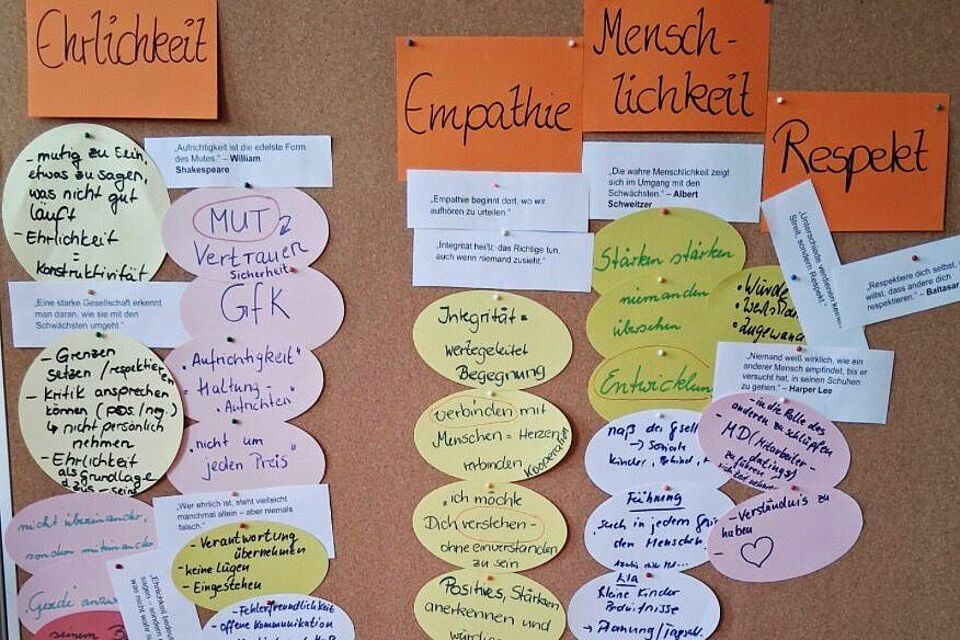 Ehrlichkeit
- mutig zu sein,
etwas zu sagen,
was nicht gut
läuft
- Ehrlichkeit
=
Konstruktivität
„Aufrichtigkeit ist die edelste Form
des Mutes.“ – William
Shakespeare
MUT
Vertrauen
Sicherheit
GfK
„Eine starke Gesellschaft erkennt
man daran, wie sie mit den
Schwächsten umgeht.“
- Grenzen
setzen / respektieren
- Kritik ansprechen
können (pos./neg.)
↳ nicht persönlich
nehmen
- Ehrlichkeit
als Grundlage
„Aufrichtigkeit“
- Haltung -
Aufrichten
„nicht um
jeden Preis“
„Wer ehrlich ist, steht vielleicht
manchmal allein – aber niemals
falsch.“
nicht übereinander,
sondern miteinander
- Verantwortung
übernehmen
- keine Lügen
- Eingestehen
„Ehrlichkeit
sagen – sondern
was nicht wahr
- Fehlerfreundlichkeit
- offene Kommunikation
seinem
Empathie
„Empathie beginnt dort, wo wir
aufhören zu urteilen.“
„Integrität heißt: das Richtige tun,
auch wenn niemand zusieht.“
Integrität =
wertegeleitet
Begegnung
verbinden mit
Menschen = Herzen
verbinden
Kooperation
„ich möchte
Dich verstehen -
ohne einverstanden
zu sein
Positives, Stärken
anerkennen und
Mensch-
lichkeit
„Die wahre Menschlichkeit zeigt
sich im Umgang mit den
Schwächsten.“ – Albert
Schweitzer
Stärken stärken
niemanden
übersehen
Entwicklung
• Würde
• Zugewand
Führung
den Menschen
Kleine Kinder
Bedürfnisse
→ Planung /
Respekt
„Unterschiede verdienen keinen
Streit, sondern Respekt.“
„Respektiere dich selbst,
willst, dass andere dich
respektieren.“ – Baltasar
„Niemand weiß wirklich, wie ein
anderer Mensch empfindet, bis er
versucht hat, in seinen Schuhen
zu gehen.“ – Harper Lee
- in die Rolle des
anderen zu schlüpfen
- Verständnis zu
haben
-